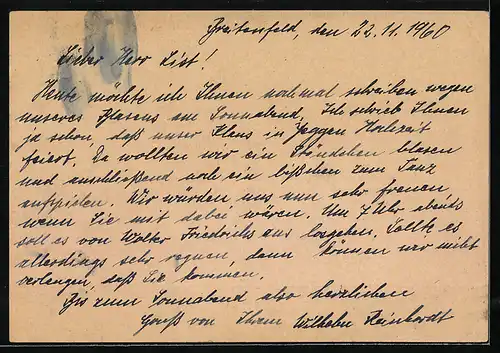 Breitenfeld, den 22.11.1960
Lieber Herr List!
Heute möchte ich Ihnen nochmal schreiben wegen
unseres Blasens am Sonnabend. Ich schrieb Ihnen
ja schon, daß unser Klaus in Jeggen Hochzeit
feiert. Da wollten wir ein Ständchen blasen
und anschließend noch ein bißchen zum Tanz
aufspielen. Wir würden uns nun sehr freuen
wenn Sie mit dabei wären. Um 7 Uhr abends
soll es von Walter Friedrichs aus losgehen. Sollte es
allerdings sehr regnen, dann können wir nicht
verlangen, daß Sie kommen.
Bis zum Sonnabend also herzlichen
Gruß von Ihrem Wilhelm Reinhardt